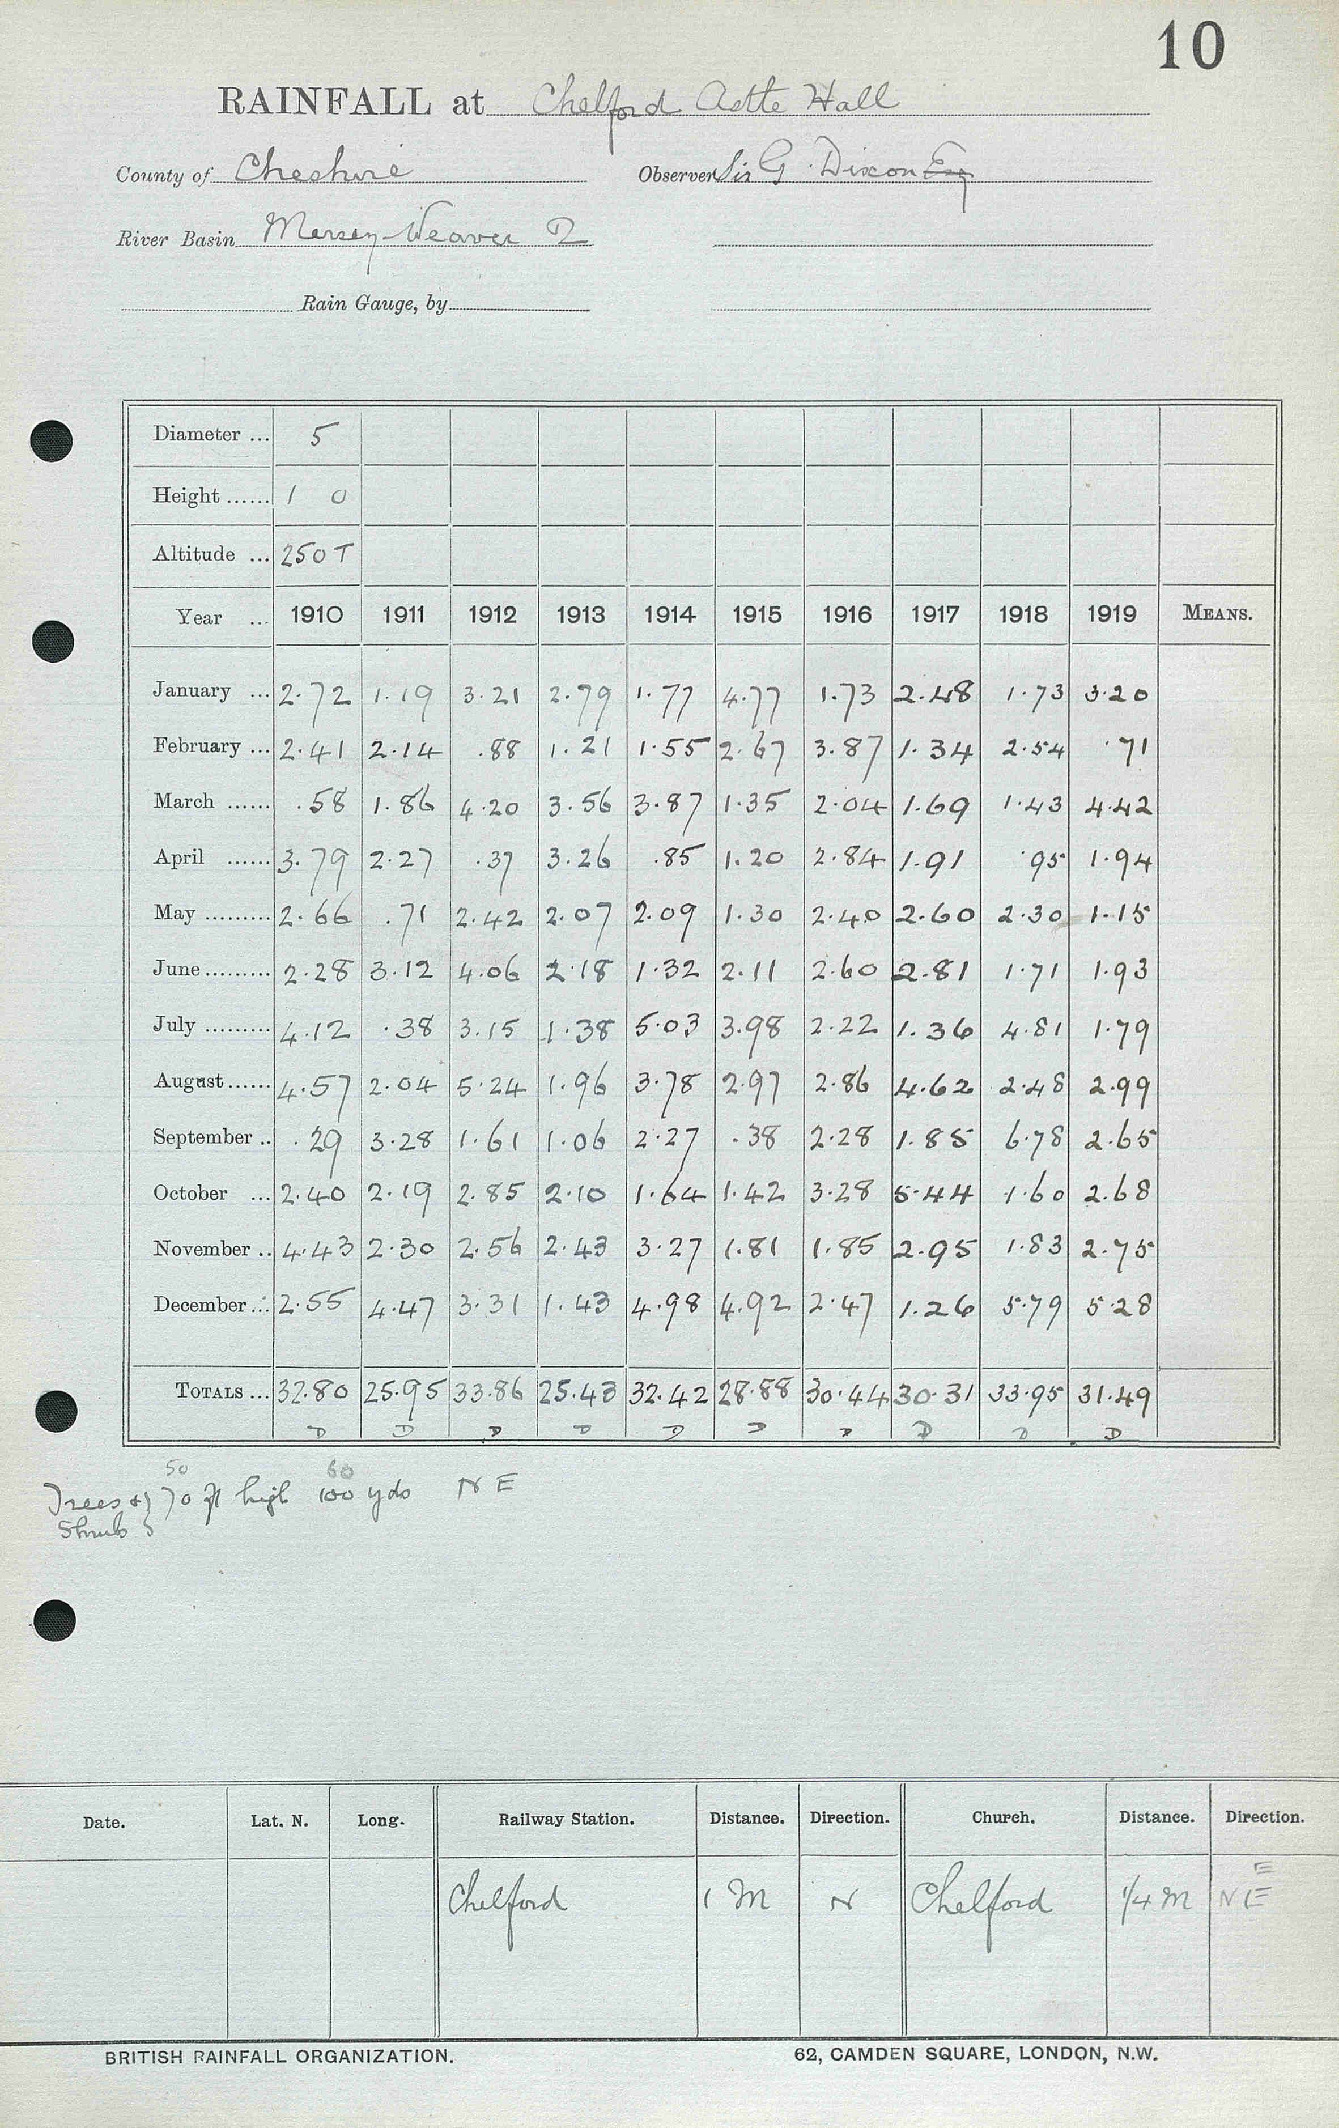 10
RAINFALL at Chelford Astle Hall
County of Cheshire Observer Sir G. Dixon Esq
River Basin Mersey-Weaver 2
Rain Gauge, by
Diameter ... 5
Height ...... 1 0
Altitude ... 250 T
Year ... 1910 1911 1912 1913 1914 1915 1916 1917 1918 1919 MEANS.
January ... 2.72 1.19 3.21 2.79 1.77 4.77 1.73 2.48 1.73 3.20
February ... 2.41 2.14 .88 1.21 1.55 2.67 3.87 1.34 2.54 .71
March ...... .58 1.86 4.20 3.56 3.87 1.35 2.04 1.69 1.43 4.42
April ...... 3.79 2.27 .37 3.26 .85 1.20 2.84 1.91 .95 1.94
May ......... 2.66 .71 2.42 2.07 2.09 1.30 2.40 2.60 2.30 1.15
June ......... 2.28 3.12 4.06 2.18 1.32 2.11 2.60 2.81 1.71 1.93
July ......... 4.12 .38 3.15 1.38 5.03 3.98 2.22 1.36 4.81 1.79
August ...... 4.57 2.04 5.24 1.96 3.78 2.97 2.86 4.62 2.48 2.99
September .. .29 3.28 1.61 1.06 2.27 .38 2.28 1.85 6.78 2.65
October ... 2.40 2.19 2.85 2.10 1.64 1.42 3.28 5.44 1.60 2.68
November .. 4.43 2.30 2.56 2.43 3.27 1.81 1.85 2.95 1.83 2.75
December ... 2.55 4.47 3.31 1.43 4.98 4.92 2.47 1.26 5.79 5.28
TOTALS ... 32.80 25.95 33.86 25.43 32.42 28.88 30.44 30.31 33.95 31.49
D D D D D D D D D D
50 60
Trees & 70 ft high 100 yds N E
Shrubs
Date. Lat. N. Long. Railway Station. Distance. Direction. Church. Distance. Direction.
E
Chelford 1 M N Chelford 1/4 M N E
BRITISH RAINFALL ORGANIZATION. 62, CAMDEN SQUARE, LONDON, N.W.